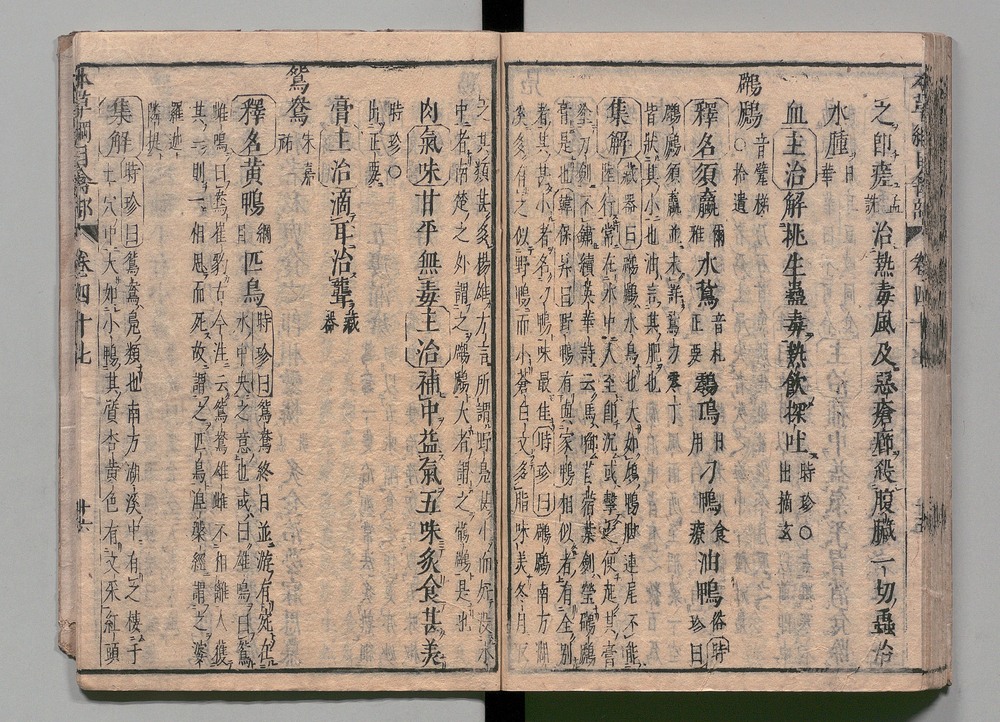 之即瘥孟詵治熱毒風及惡瘡癤殺腹臟一切蟲治
水腫日華
血主治解挑生蟲毒熱飲探吐時珍○出摘玄
鸊鷉音甓梯○拾遺
釋名須鸁爾雅水𪁉音札正要鷿鴋日用刁鴨食療油鴨俗時珍曰
鸊鷉須鸁並未詳𪁉刁零丁
皆狀其小也油言其肥也
集解藏器曰鸊鷉水鳥也大如鳩鴨脚連尾不能
陸行常在水中人至即沉或擊之便起其膏
塗刀劍不鏽續英華詩云馬銜苜蓿葉劍瑩鸊鷉
膏是也韓保昇曰野鴨有與家鴨相似者有全別
者其小者名刁鴨味最佳時珍曰鸊鷉南方湖
溪多有之似野鴨而小蒼白文多脂味美冬月取
之其類甚多楊雄方言所謂野鳧甚小而好沒水
中者南楚之外謂之鸊鷉大者謂之鶻鷉是也
肉氣味甘平無毒主治補中益氣五味炙食甚美
時珍○出正要
膏主治滴耳治聾藏器
鴛鴦朱嘉祐
釋名黃鴨綱目匹鳥時珍曰鴛鴦終日並游有宛在
水中央之意也或曰雄鳴曰鴛
雌鳴曰鴦崔豹古今注云鴛鴦雄雌不相離人獲
其一則一相思而死故謂之匹鳥涅槃經謂之婆
羅迦
隣提
集解時珍曰鴛鴦鳧類也南方湖溪中有之棲于
土穴中大如小鴨其質杏黃色有文采紅頭
本草綱目禽部 卷四十七